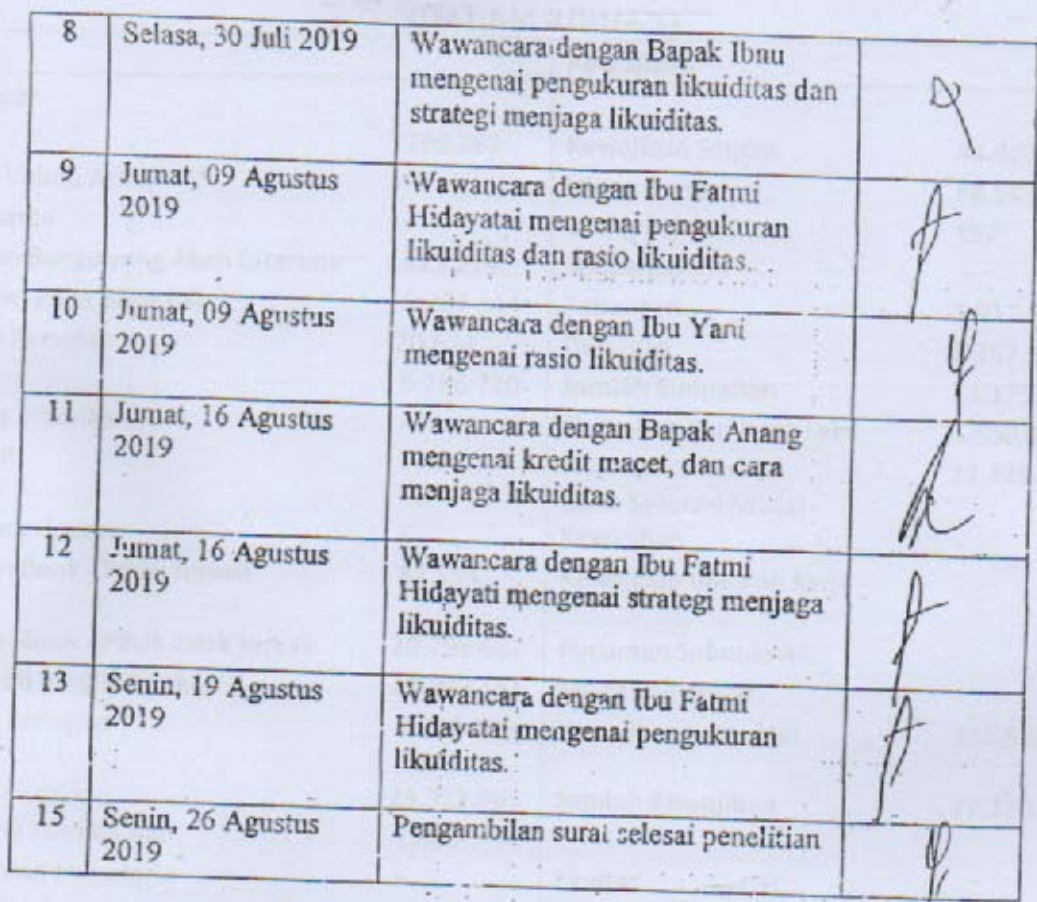 8 Selasa, 30 Juli 2019 Wawancara dengan Bapak Ibnu
mengenai pengukuran likuiditas dan
strategi menjaga likuiditas.
9 Jumat, 09 Agustus Wawancara dengan Ibu Fatmi
2019 Hidayatai mengenai pengukuran
likuiditas dan rasio likuiditas.
10 Jumat, 09 Agustus Wawancara dengan Ibu Yani
2019 mengenai rasio likuiditas.
11 Jumat, 16 Agustus Wawancara dengan Bapak Anang
2019 mengenai kredit macet, dan cara
menjaga likuiditas.
12 Jumat, 16 Agustus Wawancara dengan Ibu Fatmi
2019 Hidayati mengenai strategi menjaga
likuiditas.
13 Senin, 19 Agustus Wawancara dengan Ibu Fatmi
2019 Hidayatai mengenai pengukuran
likuiditas.
15 Senin, 26 Agustus Pengambilan surat selesai penelitian
2019